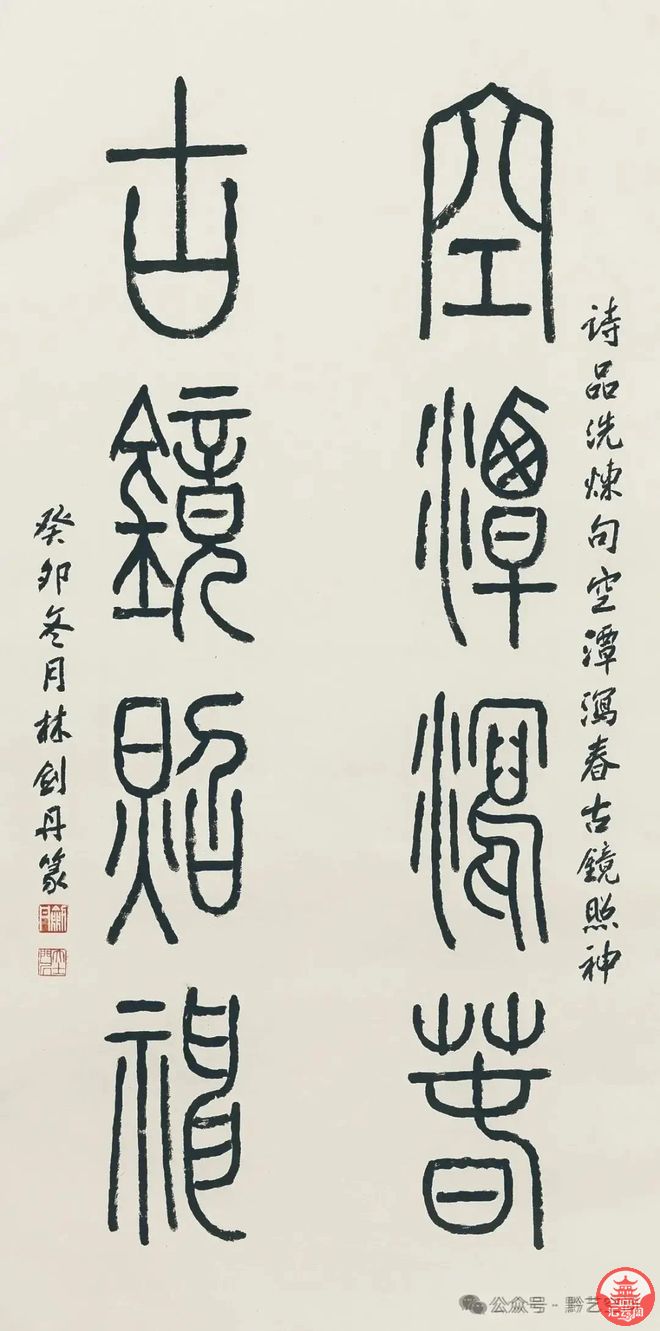 诗品洗炼句空潭泻春古镜照神
空潭泻春
古镜照神
癸卯冬月林剑丹篆
公众号·黔艺
汇云阁